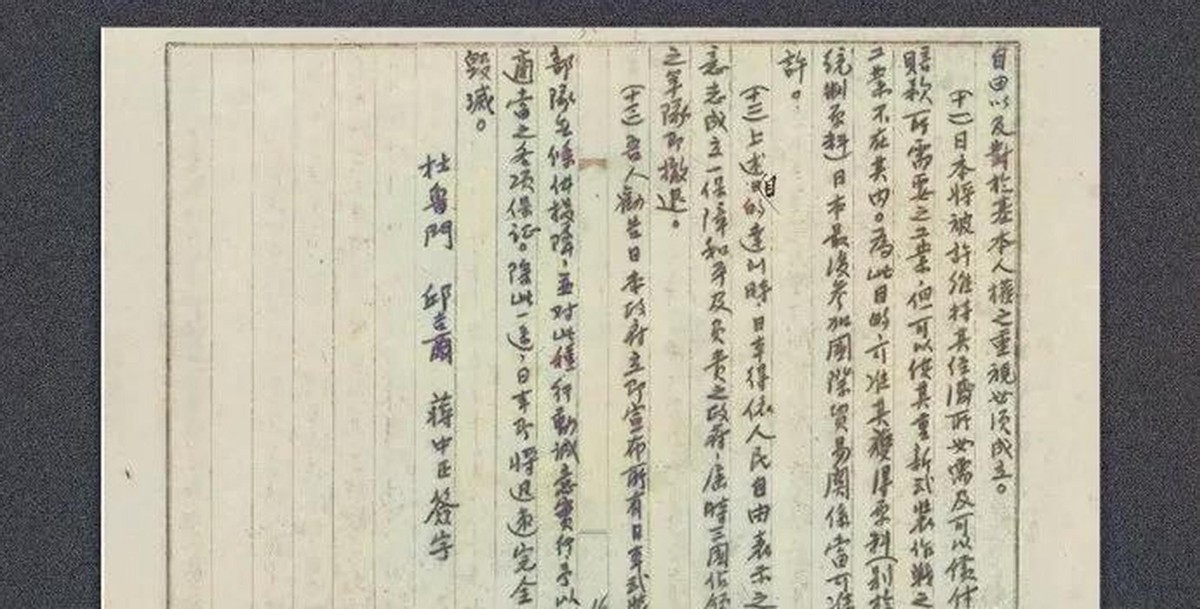 自由以及對於基本人權之重視必須成立。
(十一)日本將被許維持其經濟所必需及可以償付
賠款所需要之工業,但可以使其重新武裝作戰之
工業不在其內。為此目的可准其獲得原料(別於
統制原料)日本最後參加國際貿易關係當可准
許。
(十二)上述目的達到時,日本得依人民自由表示之
意志成立一保障和平及負責之政府,屆時三國佔領
之軍隊即撤退。
(十三)吾人勸告日本政府立即宣布所有日本武裝
部隊無條件投降,並對此種行動誠意實行予以
適當之各項保証。除此一途,日本即將迅速完全
毀滅。
杜魯門 邱吉爾 蔣中正簽字